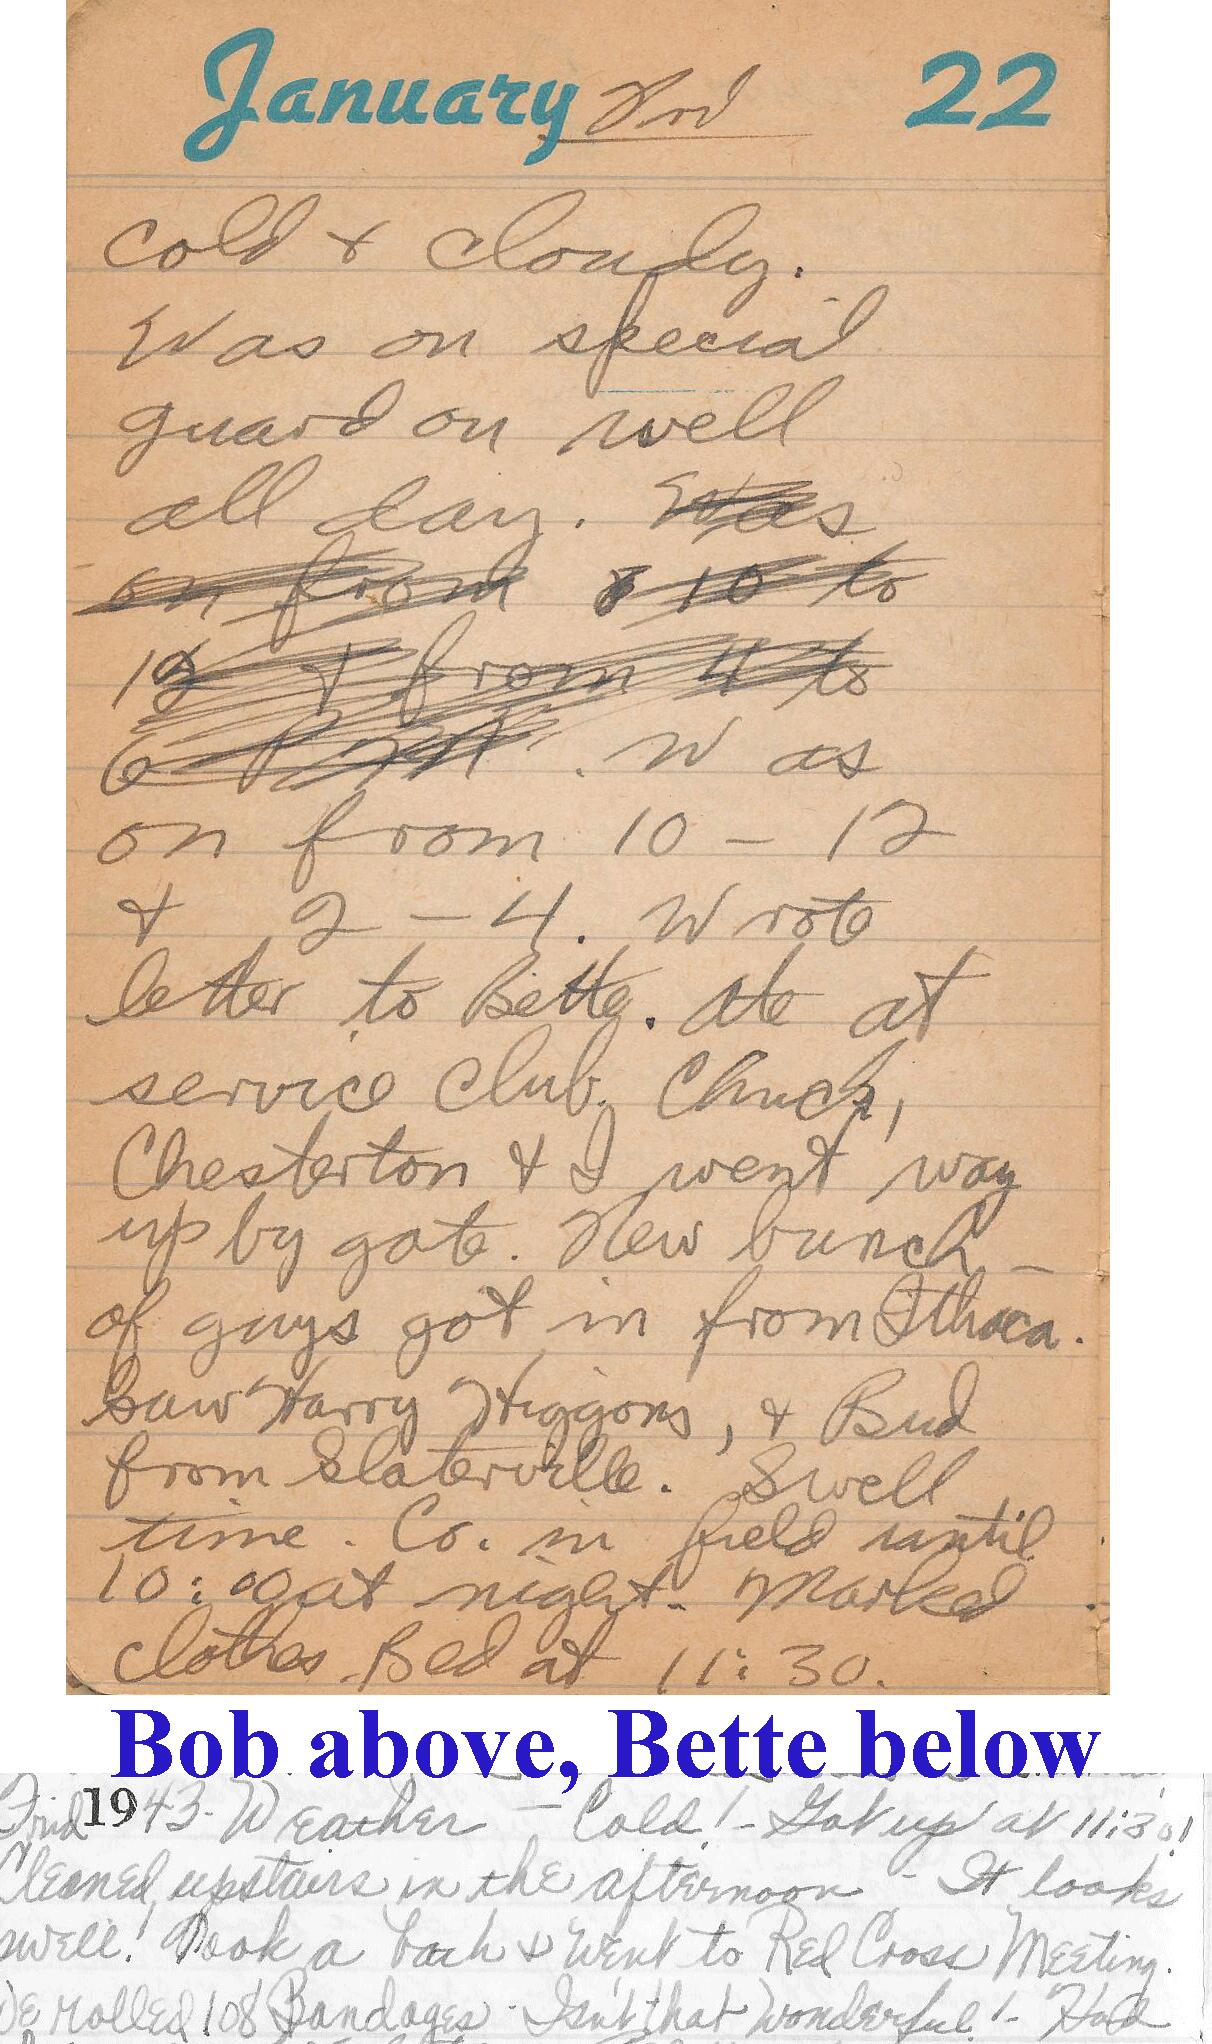 January Frid 22
Cold & Cloudy.
Was on special
guard on well
all day. Was
on from 8 10 to
12 & from 4 to
6 P.M. . Was
on from 10 - 12
& 2 - 4. Wrote
letter to Bette. Ate at
service club. Chuck,
Chesterton & I went way
up by gate. New bunch
of guys got in from Ithaca.
Saw Harry Higgons, & Bud
from Slaterville. Swell
time. Co. in field until
10:00 at night. Marked
clothes. Bed at 11:30.
Bob above, Bette below
Frid 1943 - Weather - Cold! - Got up at 11:30!
Cleaned upstairs in the afternoon - It looks
swell! Took a bath & went to Red Cross Meeting.
We rolled 108 Bandages - Isn't that wonderful! - Had